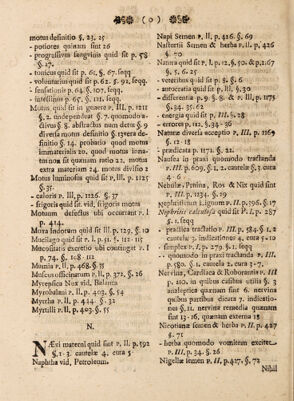 ( o )
motus definitio §. 23, 25
- potiores quinam sint 26
- progressivus sanguinis quid sit p. 58
§. 17.
- tonicus quid sit p. 61, §. 67, seqq
- voluntarius quid sit p. 62. §. 92, seqq.
- sensationis p. 64, §. 107, seq.
- intestinus p. 65, §. 111, seqq.
Motus quid sit in genere P. III. p. 1211
§. 2. independens §. 7. quomodo a-
ctivus §. 8. abstractus num detur §. 9
diversi motus definitio §. 13 vera de-
finitio §. 14. probatio quod motus
immaterialis 20. quod motus immo-
tus non sit quanam ratio 22. motus
extra materiam 24. motus divisio 2
Motus luminosus quid sit P. III. p. 1125
§. 35.
- caloris P. III. p. 1126. §. 37
- frigoris quid sit, vid. frigoris motus
Motuum defectus ubi occurrant P. I
p. 414.
Mova Indorum quid sit III. p. 129. §. 10
Mucilago quid sit P. I. p. 51. §. 111-115
Mucositatis excretio ubi contingat P. I
p. 74. §. 108-112
Mumia P. II. p. 468. §. 35
Muscus officinarum P. II. p. 372, §. 26
Myrepsica Nux vid, Balanus
Myrobalani P. II. p. 403. §. 54
Myrrha P. II. p. 434. §. 32
Myrtilli P. II. p. 403. §. 55
N.
NÆvi materni quid sint P. II. p. 592
§. 1-3. cautelæ 4. cura 5
Naphtha vid, Petroleum.
Napi Semen P. II, p. 426. §. 69
Nasturtii Semen & herba P. II. p. 426
§. 70
Natura quid sit P. I, p. 12. §. 50, & p. 2. 167
§. 5, 6. 25
- veteribus quid sit p. 8. §. 6
- autocratia quid sit p. 30. §. 20
- differentia p. 9. §. 8. & P. III, p. 1175
§. 34. 35 62
- energia quid sit P. III. §. 28
- errores p. 1234. §. 36
Naturæ diversa acceptio P. III, p. 1169
§. 12-18
- prædicata p. 1171. §. 21.
Nausea in praxi quomodo tractanda
P. III. p. 609. §. 1. cautelæ 2, 3. cura
4-6.
Nebulæ, Pruina, Ros & Nix quid sint
P. III. p. 1134. §. 29
Nephriticum Lignum P. II. p. 196. §. 17
Nephritis calculosa quid sit P. I. p. 287
§. 1. seqq
- practice tractatio P. III. p. 584. §. 1, 2
cautelæ 3. indicationes 4. cura 5-10
- simplex P. I. p. 279. §. 1. seqq.
- - quomodo in praxi tractanda P. III.
p. 580. §. 1. cautela 2. cura 3-7.
Nervina, Cardiaca & Roborantia P. III
p. 210. in quibus casibus utilia §. 3
analeptica quænam sint 6. nervina
quibus partibus dicata 7. indicatio-
nes §. 11. nervina remedia quænam
sint 13-16. quænam externa 18
Nicotianæ semen & herba P. II. p. 427
§. 71
- herba quomodo vomitum excitet
P. III, p. 34. §. 26
Nigellæ semen P. II, p. 427, §. 72
Nihil